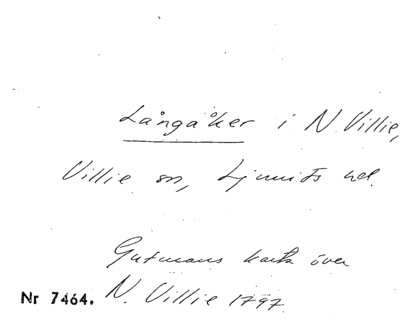 Långåker i N. Villie,
Villie sn, Ljunits hd.
Gutmans karta över
Nr 7464. N. Villie 1797